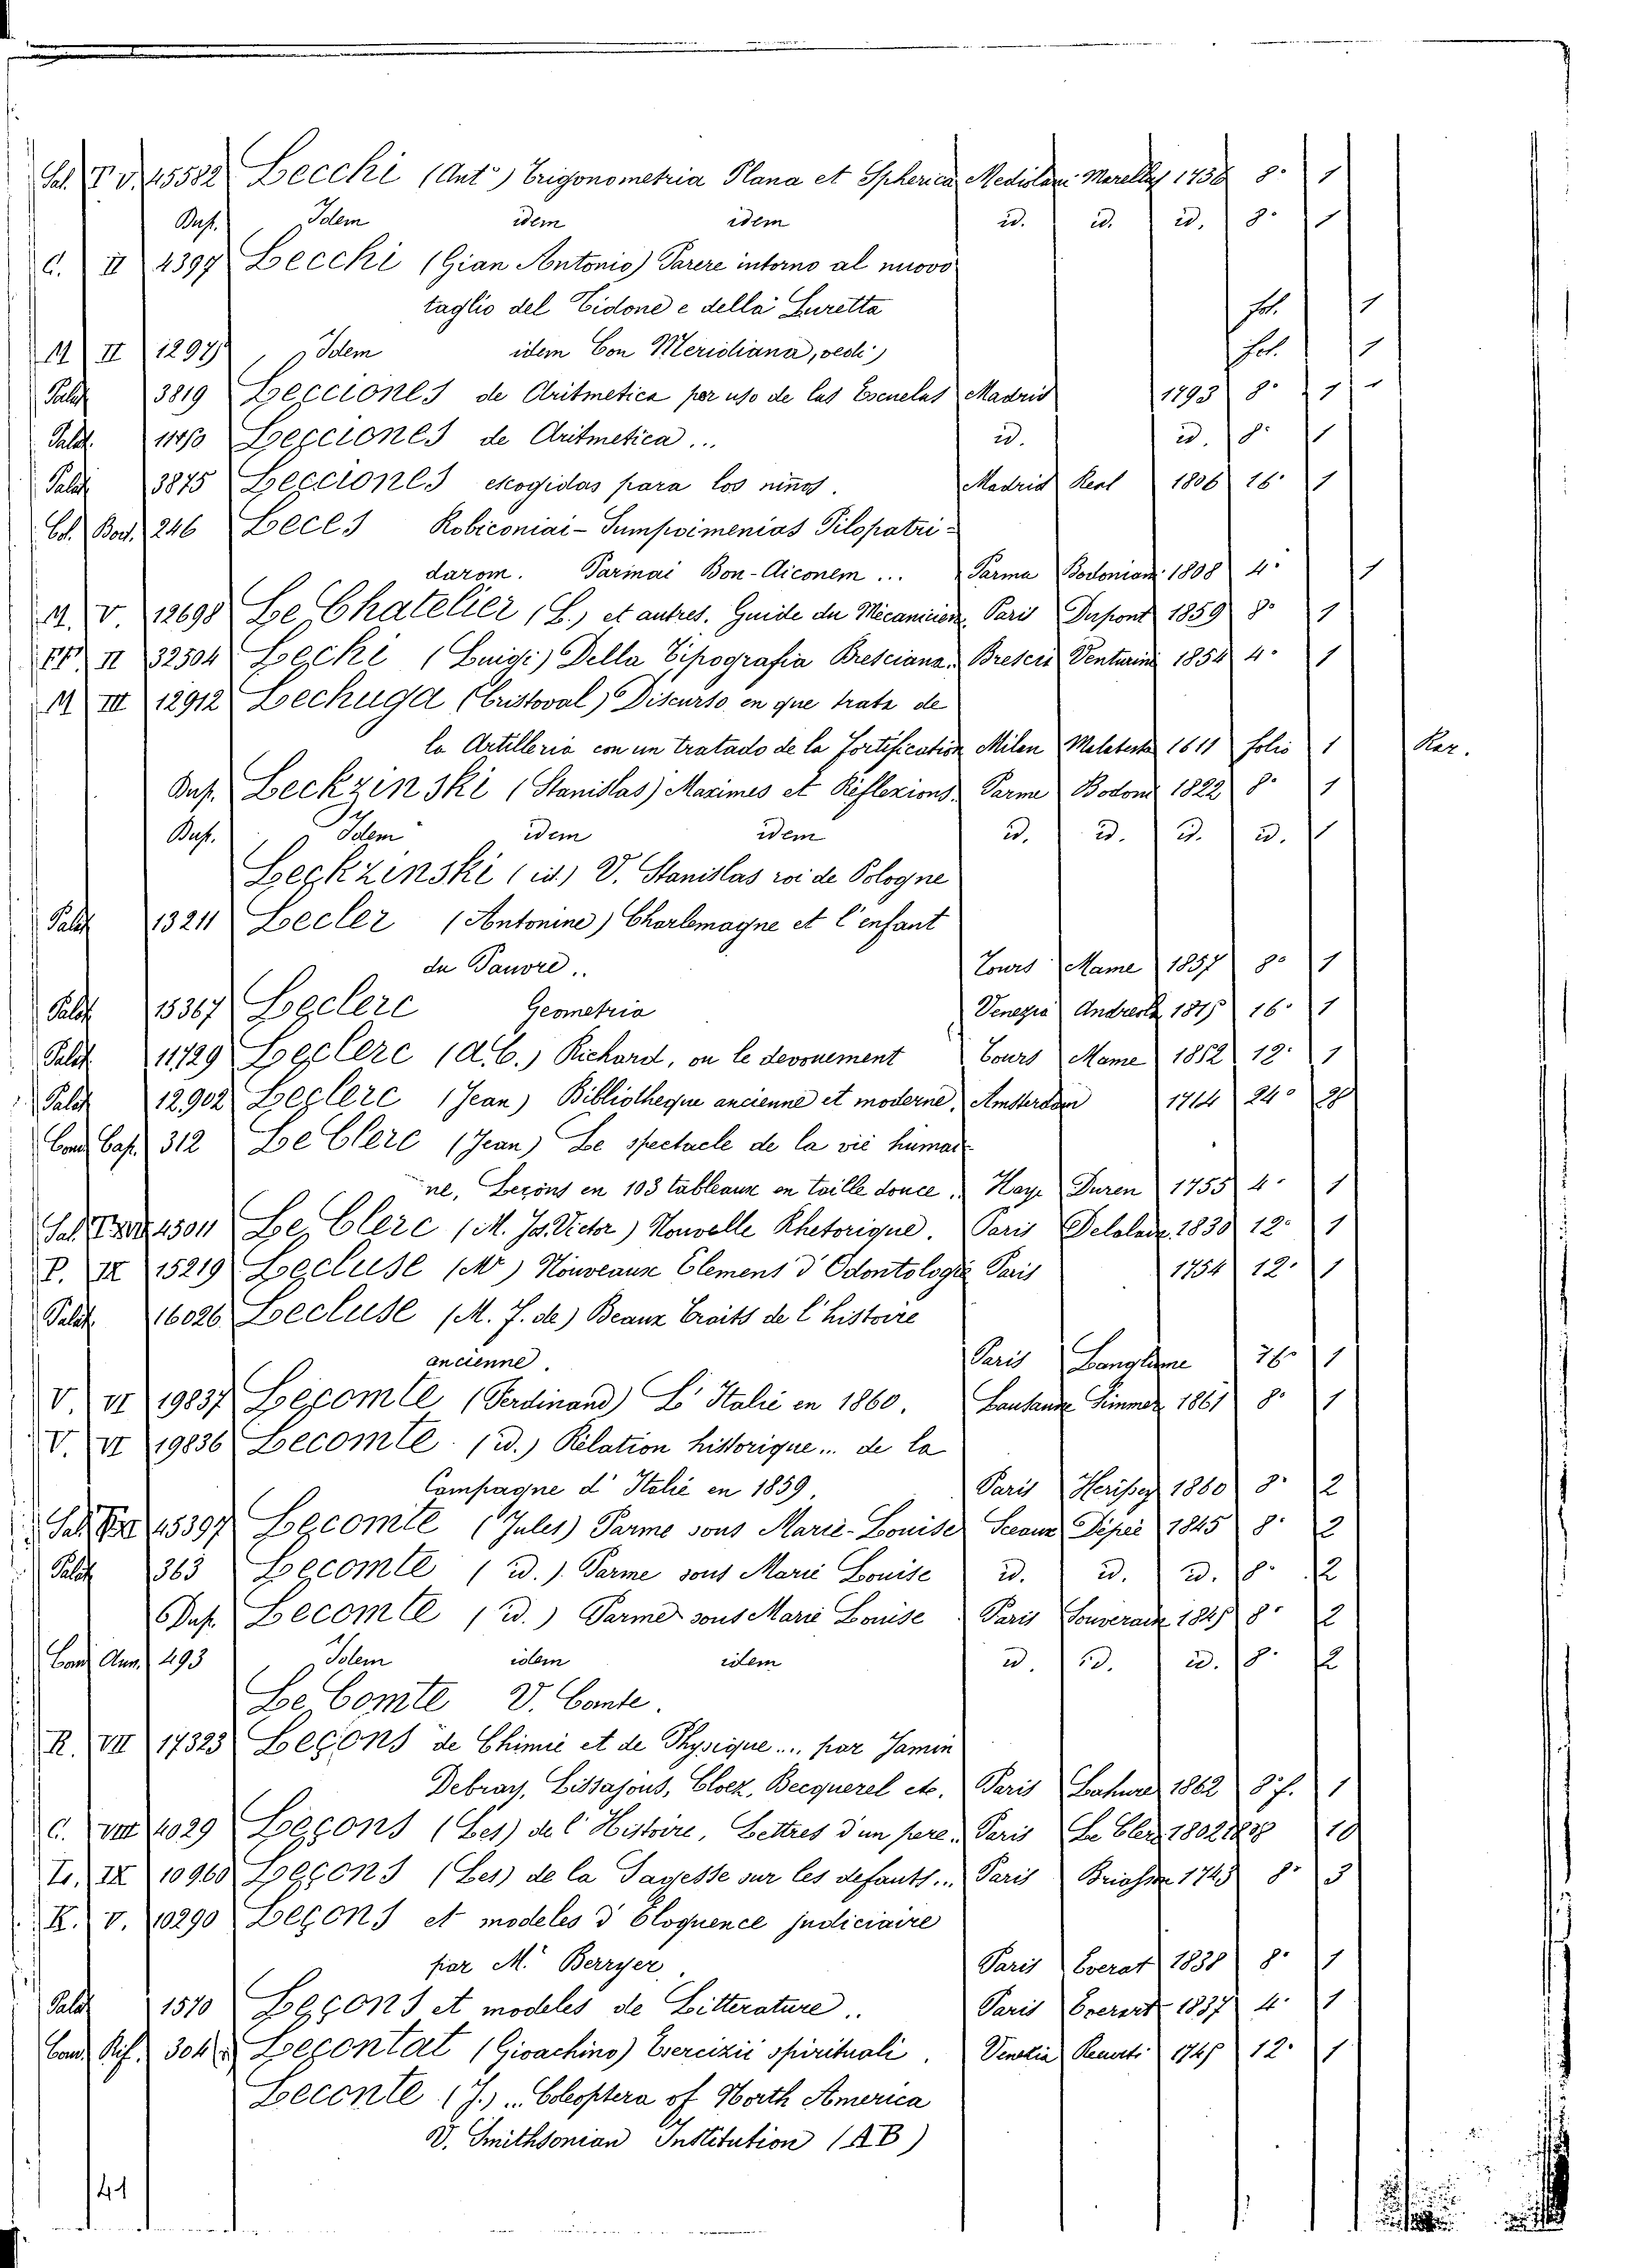 Sal. T. V. 45582 Lecchi (Ant.o) Trigonometria Plana et Spherica Mediolani Marellus 1756 8.o 1
Dup. Idem idem idem id. id. id. 8.o 1
C. II 4397 Lecchi (Gian Antonio) Parere intorno al nuovo
taglio del Tidone e della Luretta fol. 1
M II 1297 Idem idem Con Meridiana, vedi) fol. 1
Palat. 3819 Lecciones de Aritmetica por uso de las Escuelas Madrid 1793 8.o 1
Palat. Lecciones de Aritmetica ... id. id. 8.o 1
Palat. 3875 Lecciones escogidas para los niños. Madrid Real 1806 16.o 1
Col. Bod. 246 Leces Robiconiai-Sumpsimenias Pilopatri-
darom. Parmai Bon-Aiconem ... Parma Bodoniani 1808 4.o 1
M. V. 12698 Le Chatelier (L.) et autres. Guide du Mécanicien Paris Dupont 1859 8.o 1
II 32504 Lechi (Luigi) Della Tipografia Bresciana. Brescia Venturini 1854 4.o 1
M III 12912 Lechuga (Cristoval) Discurso en que trata de
la Artilleria con un tratado de la Fortification Milan Malatesta 1611 folio 1 Rar.
Dup. Leckzinski (Stanislas) Maximes et Réflexions. Parme Bodoni 1822 8.o 1
Dup. Idem idem idem id. id. id. id. 1
Leckzinski (id.) V. Stanislas roi de Pologne
Palat. 13211 Lecler (Antonine) Charlemagne et l'enfant
du Pauvre.. Tours Mame 1857 8.o 1
Palat. 15367 Leclerc Geometria Venezia Andreola 16.o 1
Palat. 11729 Leclerc (A. C.) Richard, ou le devouement Tours Mame 1852 12.o 1
Palat. 12902 Leclerc (Jean) Bibliotheque ancienne et moderne, Amsterdam 1714 24.o 28
Cons. Cap. 312 Le Clerc (Jean) Le spectacle de la vie humai-
ne, Leçons en 103 tableaux en taille douce. Haye Duren 1755 4.o 1
Sal. 45011 Le Clerc (M. Jos. Victor) Nouvelle Rhetorique. Paris Delalain 1830 12.o 1
P. IX 15219 Lecluse (Mr) Nouveaux Elemens d'Odontologie Paris 1754 12.o 1
Palat. 16026 Lecluse (M. F. de) Beaux traits de l'histoire
ancienne. Paris Langlume 16.o 1
V. VI 19837 Lecomte (Ferdinand) L'Italie en 1860. Lausanne Simmen 1861 8.o 1
V. VI 19836 Lecomte (id.) Relation historique... de la
Campagne d'Italie en 1859. Paris 1860 8.o 2
Sal. 45397 Lecomte (Jules) Parme sous Marie-Louise Sceaux Dépée 1845 8.o 2
Palat. 363 Lecomte (id.) Parme sous Marie Louise id. id. id. 8.o 2
Dup. Lecomte (id.) Parme sous Marie Louise Paris Souverain 1845 8.o 2
Cons. Ann. 493 Idem idem idem id. id. id. 8.o 2
Le Comte V. Conte.
R. VII 17323 Leçons de Chimie et de Physique... par Jamin
Debray, Lissajous, Cloez, Becquerel etc. Paris Lahure 1862 8.o f. 1
C. VIII 4029 Leçons (Les) de l'Histoire, Lettres d'un pere.. Paris Le Clerc 1802 10
L. IX 10960 Leçons (Les) de la Sagesse sur les defauts... Paris Briasson 1743 8.o 3
K. V. 10290 Leçons et modeles d'Eloquence judiciaire
par M. Berryer. Paris Everat 1838 8.o 1
Palat. 1570 Leçons et modeles de Litterature.. Paris Everat 1837 4.o 1
Cons. Rif. 304 Leçontat (Gioachino) Esercizii spirituali. Venezia Recurti 1745 12.o 1
Leconte (J.)... Coleoptera of North America
V. Smithsonian Institution (AB)
41